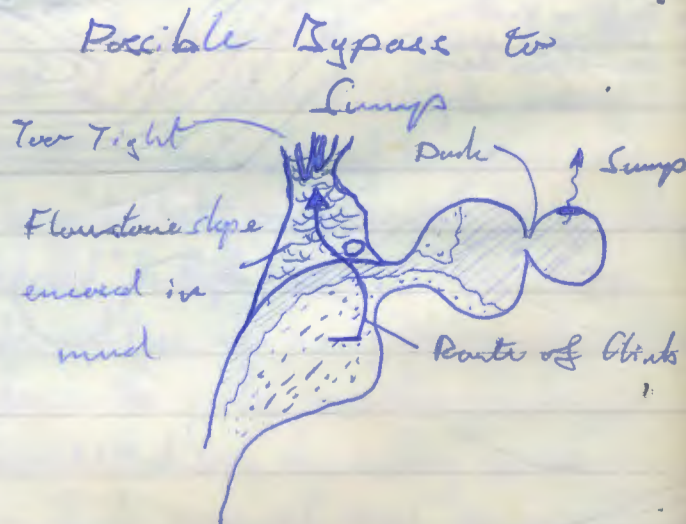 Possible Bypass to
Sump
Too Tight
Duck
Sump
Flowstone slope
encased in
mud
Route of Climb